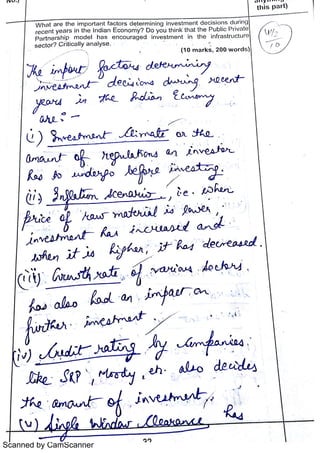 this part)
What are the important factors determining investment decisions during
recent years in the Indian Economy? Do you think that the Public Private
Partnership model has encouraged investment in the infrastructure
sector? Critically analyse.
(10 marks, 200 words)
4½
10
The import factors determining
investment decisions during recent
years in the Indian Economy
are:-
(i) Investment Climate or the
amount of regulations an investor
has to undergo before investing.
(ii) Inflation Scenario, i.e. when
price of raw material is lower,
investment has increased and
when it is higher, it has decreased.
(iii) Growth rate of various sectors.
has also had an impact on
further investment.
(iv) Credit rating by Companies
like S&P, Moody, etc. also decides
the amount of investment.
(v) Single Window Clearance has
Scanned by CamScanner